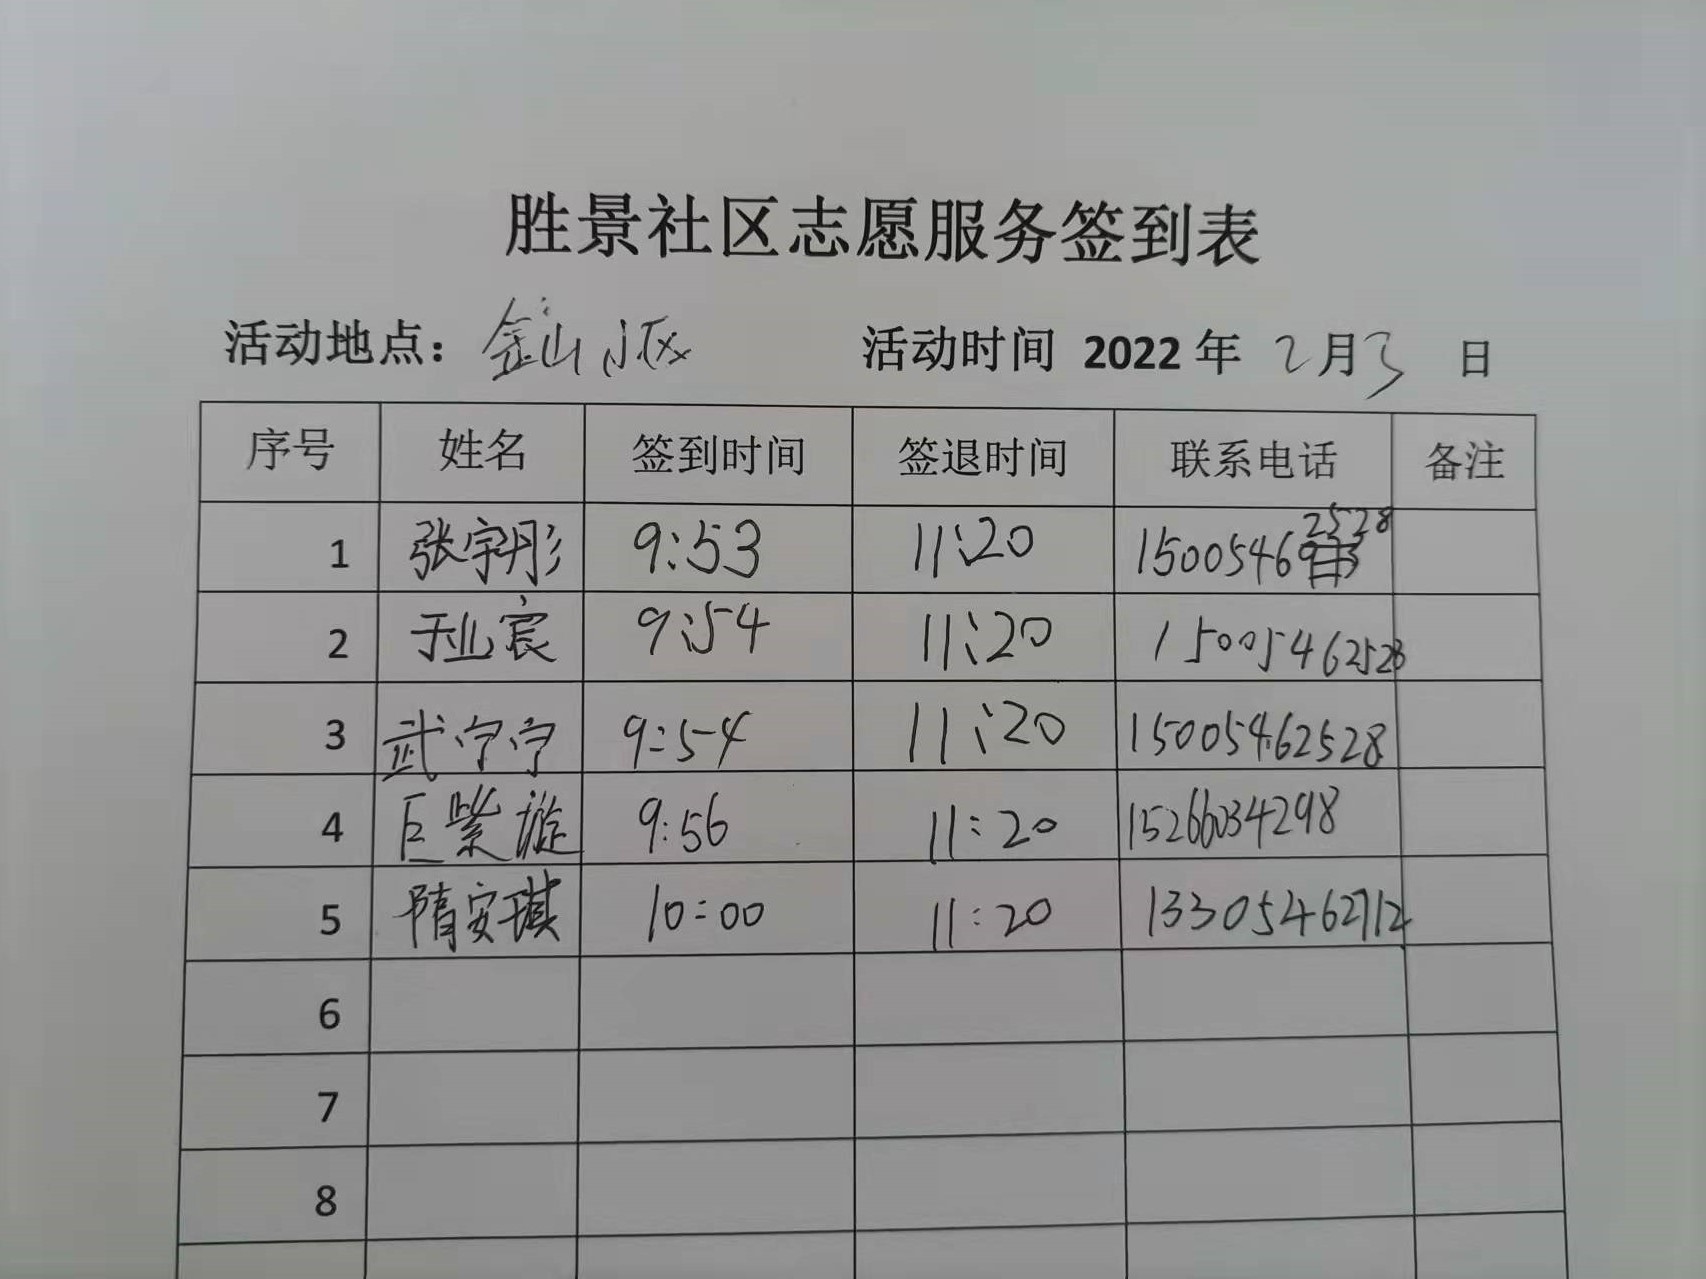 胜景社区志愿服务签到表
活动地点：金山小区 活动时间 2022 年 2月3 日
序号 姓名 签到时间 签退时间 联系电话 备注
1 张宇彤 9:53 11:20 15005462528
2 于业宸 9:54 11:20 15005462528
3 武宁宁 9:54 11:20 15005462528
4 巨紫漩 9:56 11:20 15266034298
5 隋安琪 10:00 11:20 13305462712
6
7
8